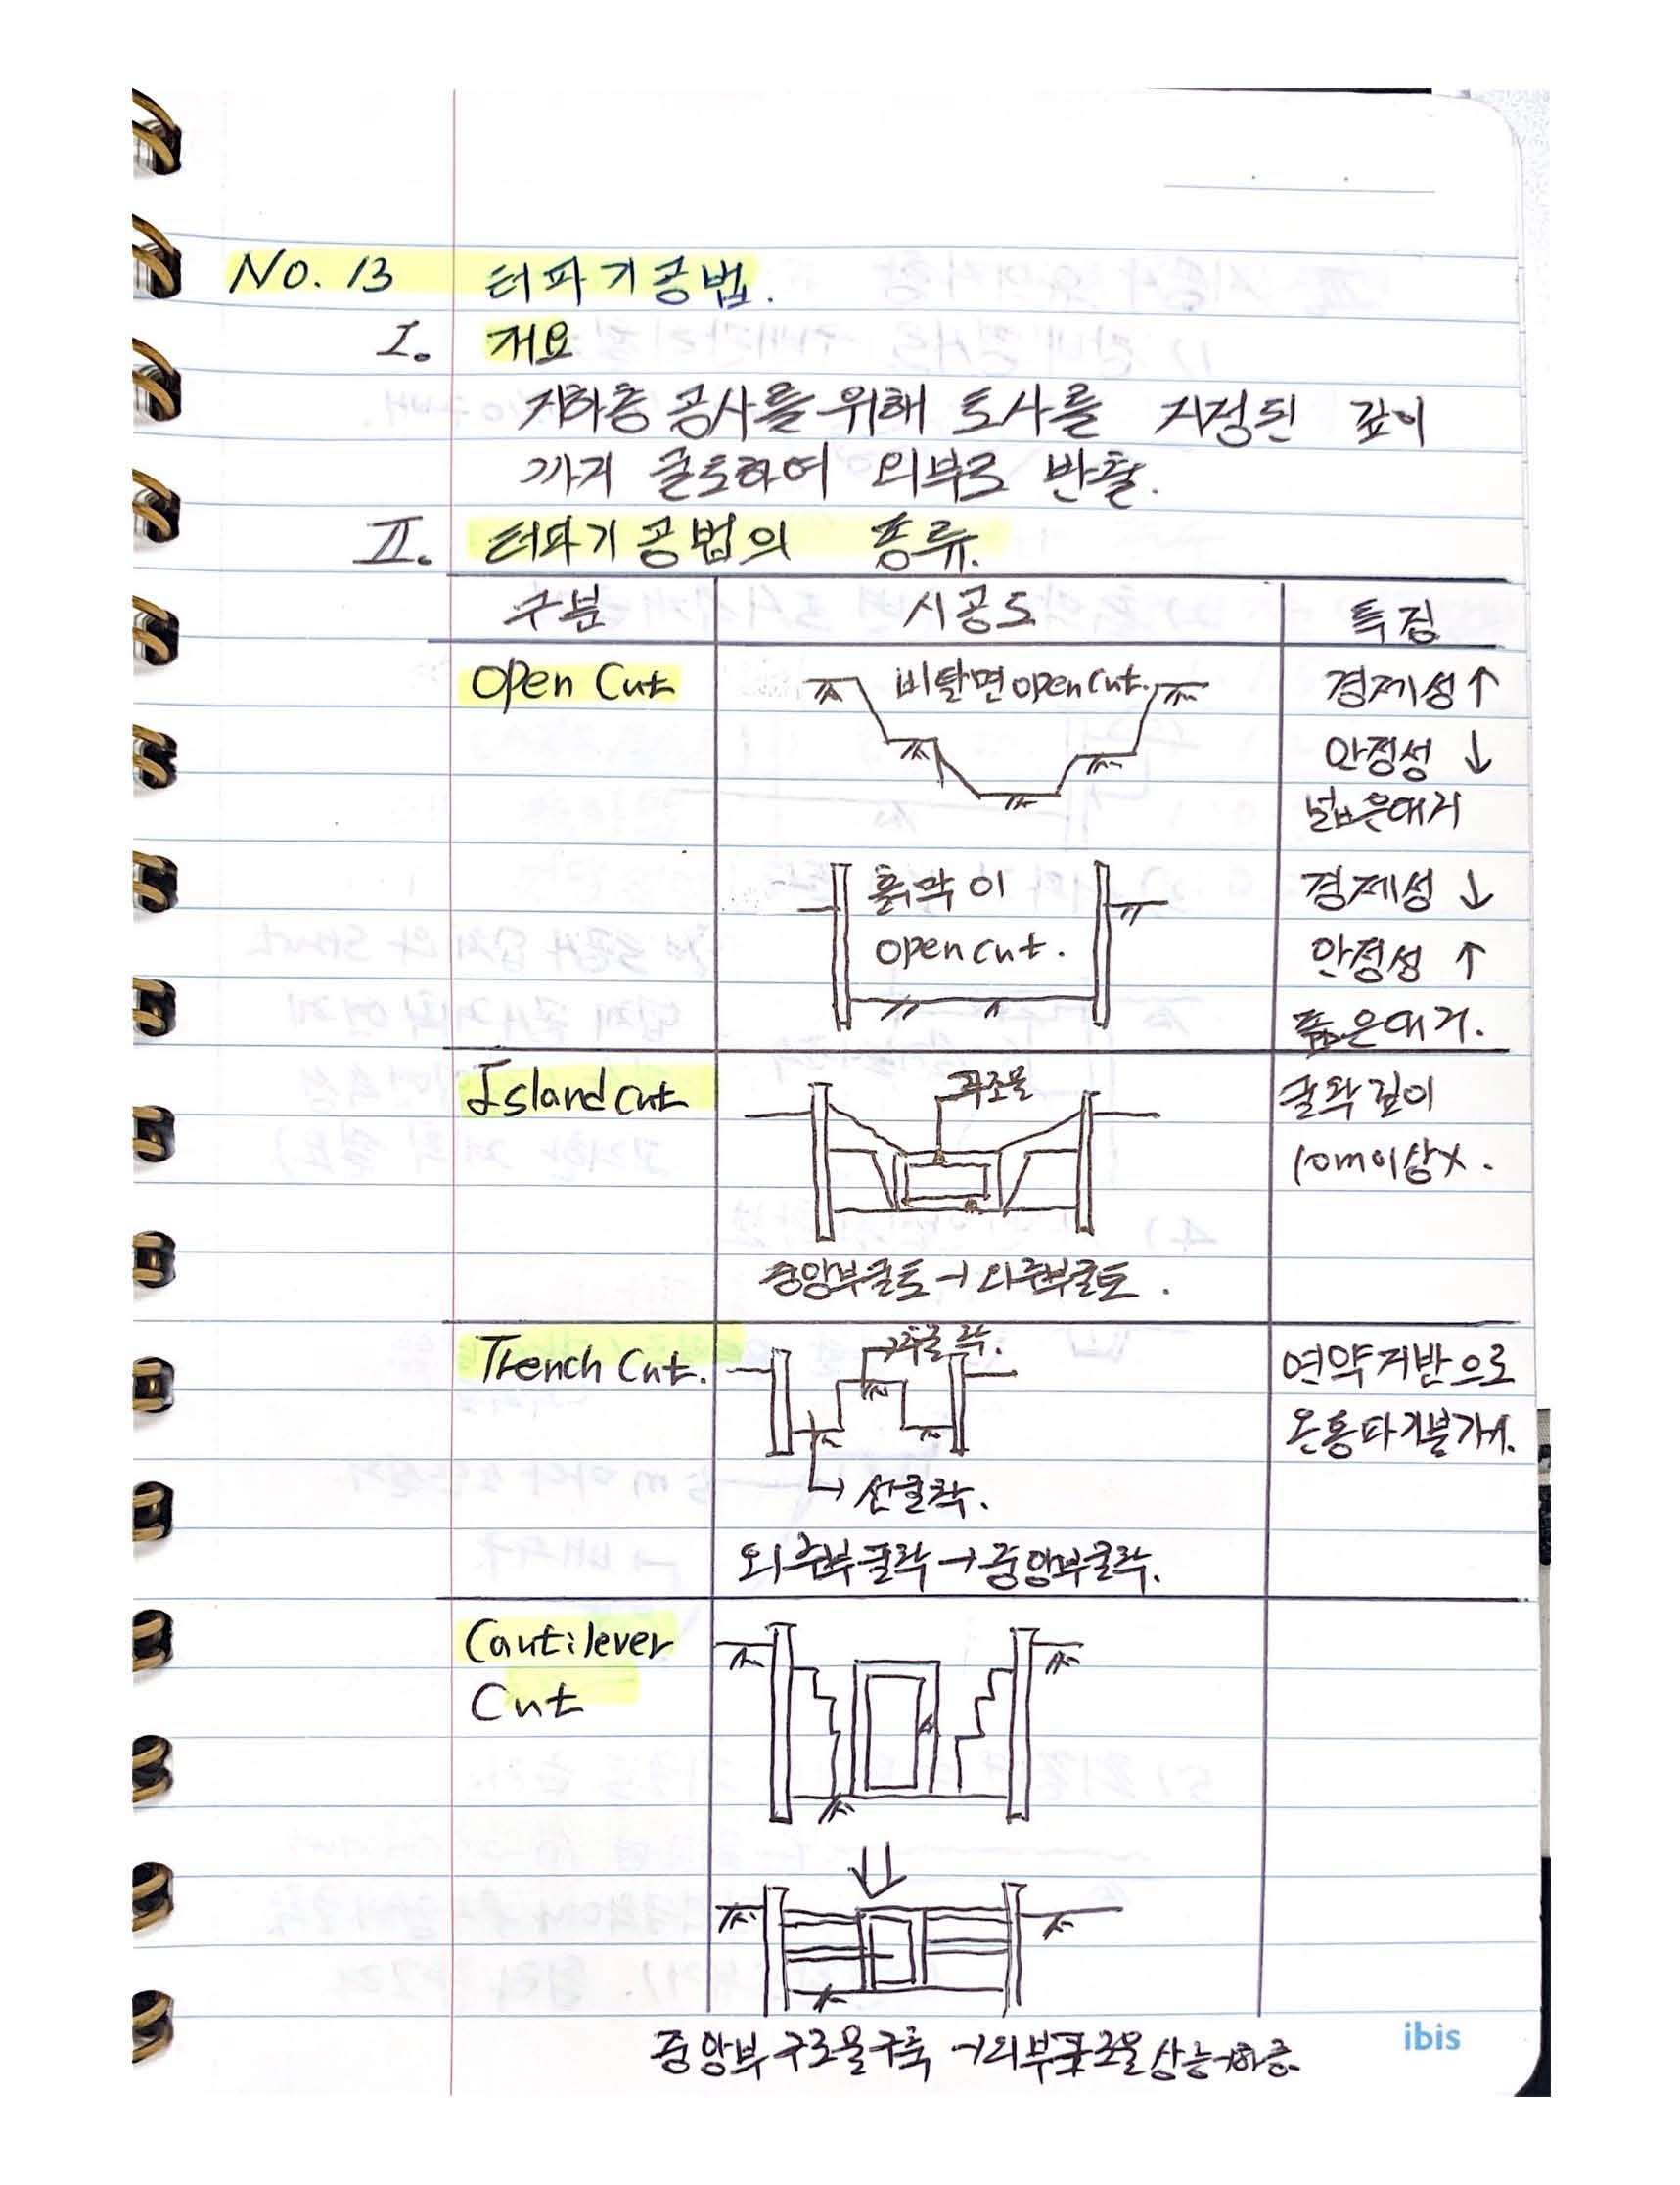 No. 13 터파기공법.
I. 개요
지하층 공사를 위해 토사를 지정된 깊이
까지 굴토하여 외부로 반출.
II. 터파기공법의 종류.
구분 시공도 특징
Open Cut 비탈면 open cut. 경제성↑
안정성 ↓
넓은대지
흙막이 경제성 ↓
open cut. 안정성 ↑
좁은대지.
Island cut 구조물 굴착깊이
10m이상X.
중앙부굴토→외주부굴토.
Trench Cut. →후굴착. 연약지반으로
온통파기불가시.
→ 선굴착.
외주부굴착→중앙부굴착.
Cantilever
Cut
중앙부 구조물구축 →외부구조물 상층→하층.
ibis